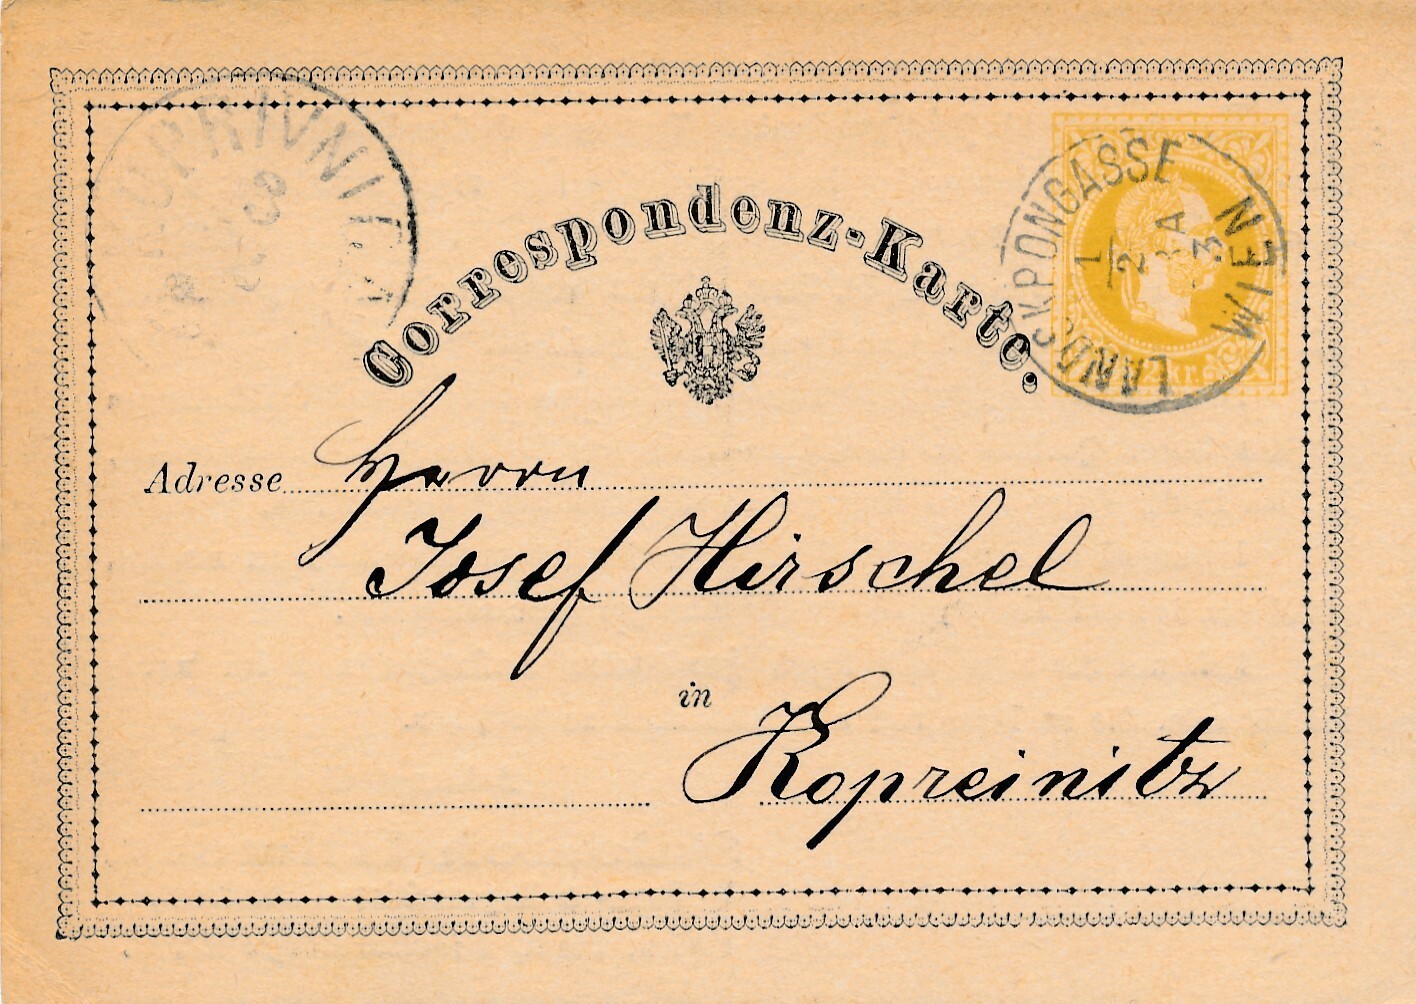 KOPRIVNIT
Correspondenz-Karte.
LANDSKRONGASSE
WIEN
1
2
3
2 KR.
Adresse Herrn
Josef Hirschel
in
Kopreinitz